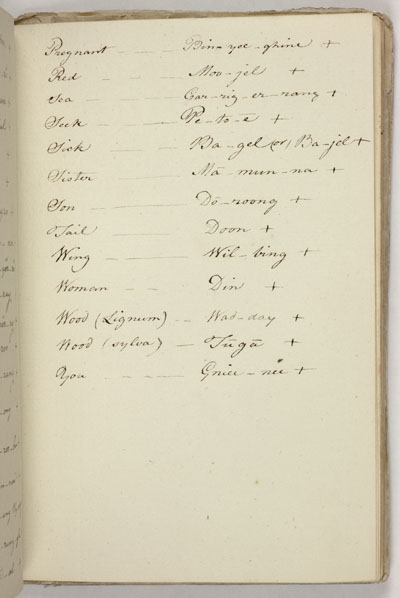 Pregnant - - - Bin-yee-ghine +
Red - - - Moo-jel +
Sea - - - Gar-rig-er-rang +
Seek - - - Pe-to-e +
Sick - - - Ba-gel (or) Ba-jel +
Sister - - - Mā-mun-na +
Son - - - Dō-roong +
Tail - - - Doon +
Wing - - - Wil-bing +
Woman - - Din +
Wood (Lignum) - - Wad-day +
Wood (sylva) - Tūgā +
You - - - - +